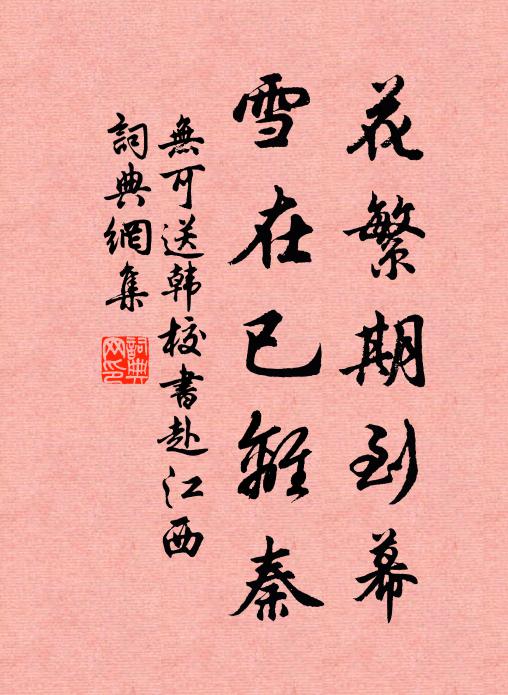 花繁期到幕
雪在已離秦
無可送韩校書赴江西
詞典網集
詞典網印